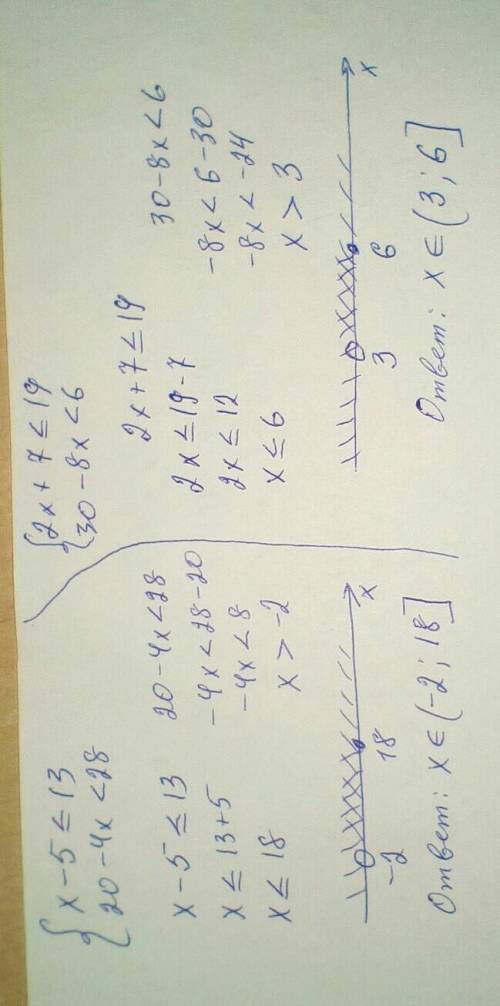 { x - 5 ≤ 13
20 - 4x < 28
x - 5 ≤ 13
x ≤ 13 + 5
x ≤ 18
20 - 4x < 28
-4x < 28 - 20
-4x < 8
x > -2
-2 18 x
Ответ: x ∈ (-2; 18]
{ 2x + 7 ≤ 19
30 - 8x < 6
2x + 7 ≤ 19
2x ≤ 19 - 7
2x ≤ 12
x ≤ 6
30 - 8x < 6
-8x < 6 - 30
-8x < -24
x > 3
3 6 x
Ответ: x ∈ (3; 6]